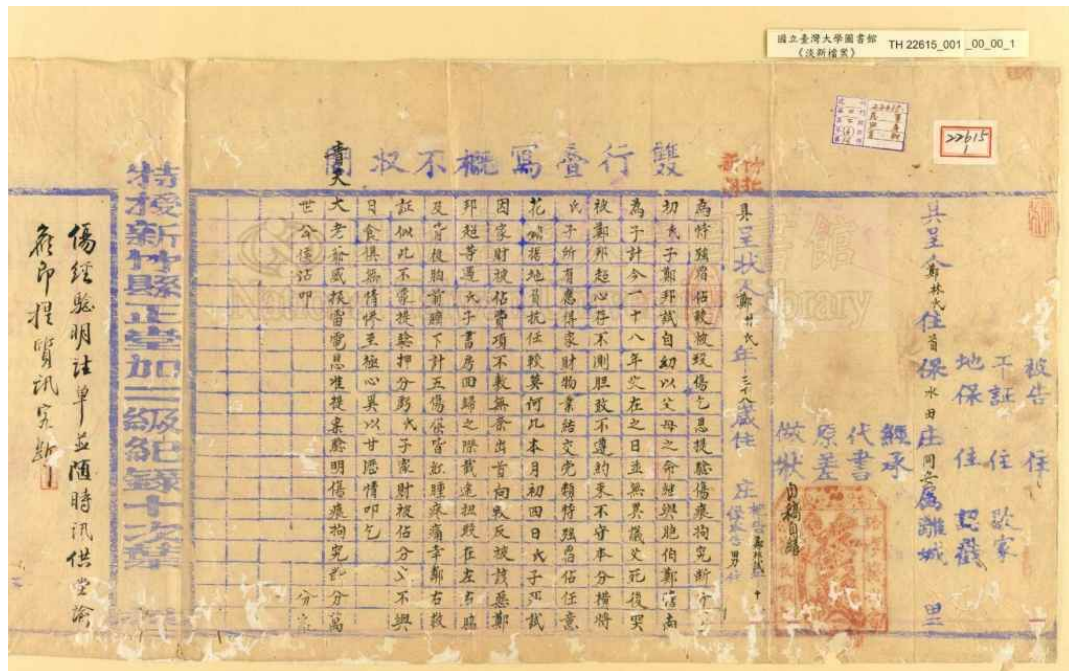 國立臺灣大學圖書館
《淡新檔案》
TH 22615_001_00_00_1
22615
1
雙行疊寫概不收閱
被告 住
工証 住 歇家
地保 住 認戳
具呈人鄭林氏住首保水田庄同安屬離城 里
經承
代書
原差
做狀 自稿自繕
具呈狀人鄭林氏年三十八歲住 庄
為恃強霸佔毆被毆傷乞恩提驗傷痕拘究斷分事
切氏子鄭邦試自幼以父母之命繼與胞伯鄭 尚
為子計今一十八年父在之日並無異議父死後哭
被鄭邦超心存不測胆敢不遵約束不守本分橫將
氏子所有應得家財物業結交党類恃強霸佔任意
花銷 地負抗任較莫何此本月初四日氏子邦試
因家財被佔費項不敷無奈出首向 反被該惡鄭
邦超等遇氏子書房回歸之際截途扭毆在左右脇
及背後胸前臍下計五傷俱皆紅腫疼痛幸鄭右敦
証似此不蒙提驗押分弱氏子家財被佔分文不與
日食俱無情慘至極心異以甘瀝情叩乞
青天
大老爺威振雷電恩准提案驗明傷痕拘究 分萬
世公侯沾叩 分家
特授新竹縣正堂加三級紀錄十次
傷經驗明註單並隨時訊供堂諭
飛即提質訊究斷